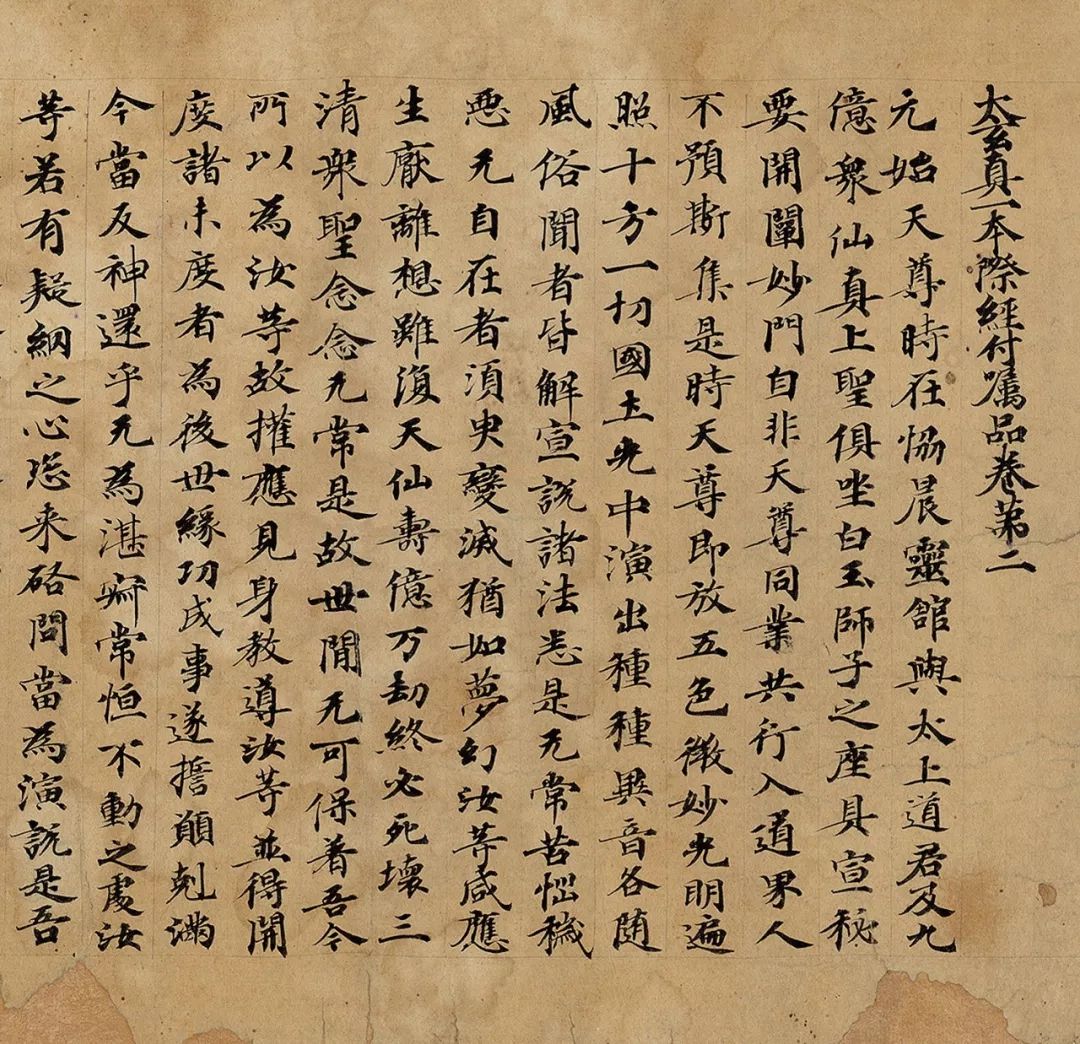 太玄真一本際經付囑品卷第二
元始天尊時在恊晨靈館與太上道君及九
億衆仙真上聖俱坐白玉師子之座具宣秘
要開闡妙門自非天尊同業共行入道界人
不預斯集是時天尊即放五色徴妙光明遍
照十方一切國土光中演出種種異音各随
風俗聞者皆解宣説諸法悉是无常苦惱穢
惡无自在者湏臾變滅猶如夢幻汝等咸應
生厭離想雖復天仙壽億万劫終必死壞三
清衆聖念念无常是故世間无可保着吾今
所以為汝等故權應見身教導汝等並得開
度諸未度者為後世緣功成事遂誓願剋滿
今當反神還乎无為湛寂常恒不動之處汝
等若有疑網之心恣来諮問當為演説是吾